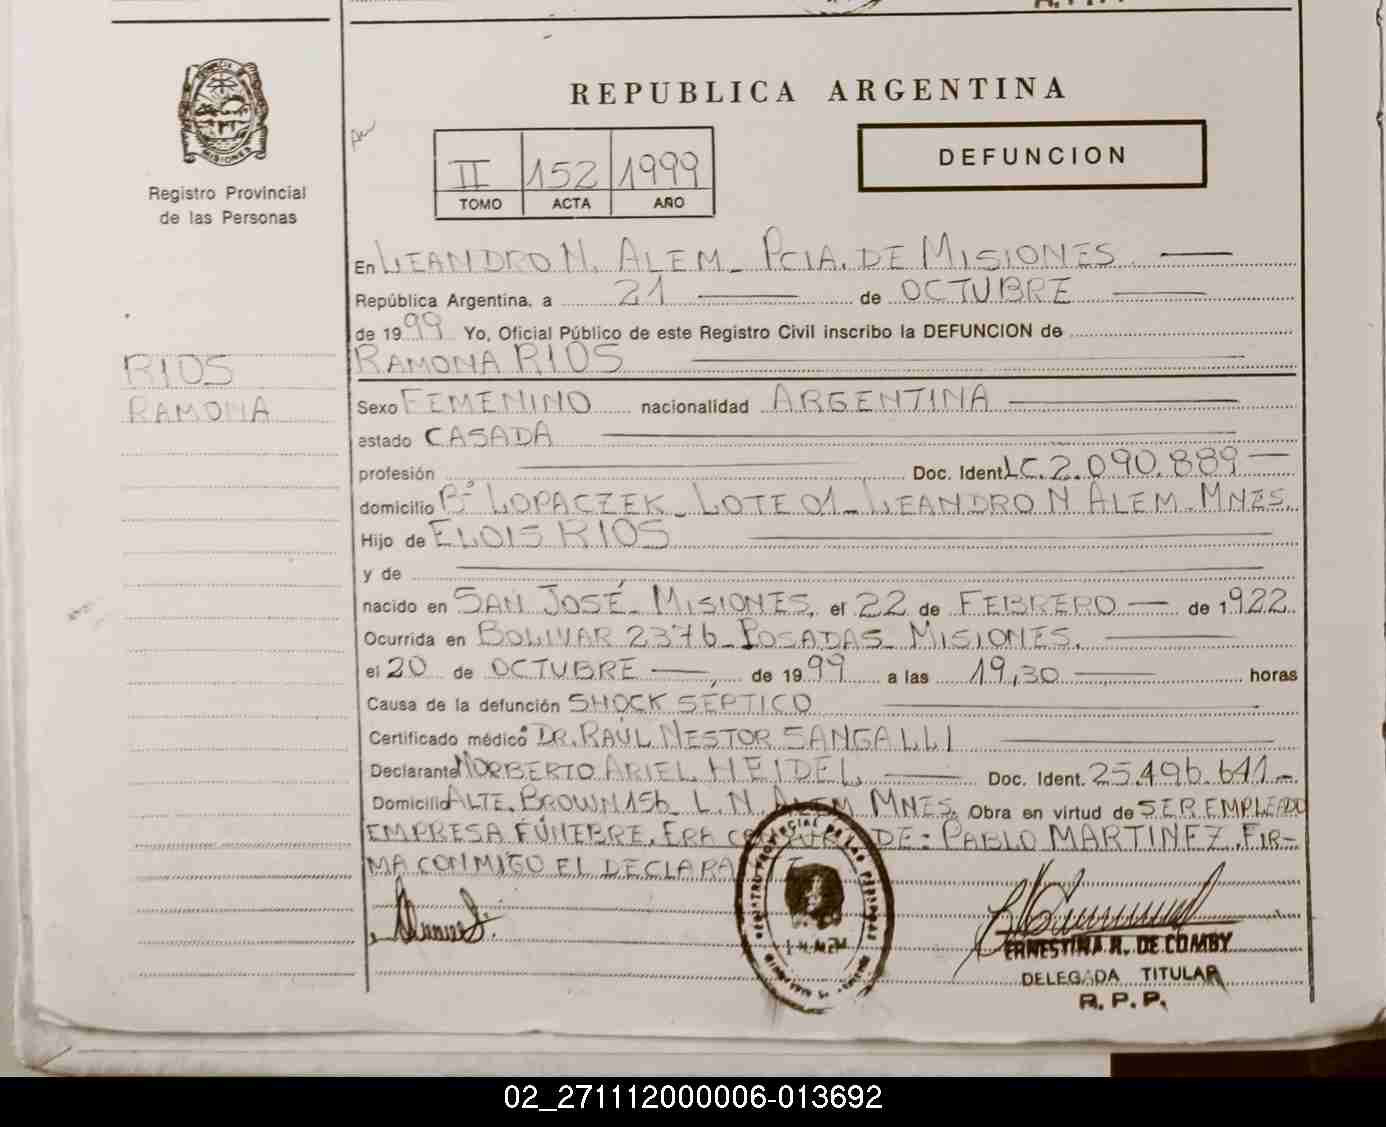 REPUBLICA ARGENTINA
II 152 1999
TOMO ACTA AÑO
DEFUNCION
MISIONES
Registro Provincial
de las Personas
RIOS
RAMONA
En LEANDRO N. ALEM_ PCIA. DE MISIONES
República Argentina, a 21 de OCTUBRE
de 1999 Yo, Oficial Público de este Registro Civil inscribo la DEFUNCION de
RAMONA RIOS
Sexo FEMENINO nacionalidad ARGENTINA
estado CASADA
profesión Doc. Ident. LC. 2.090.889
domicilio Bº LOPACZEK_ LOTE 01_ LEANDRO N ALEM. MNES.
Hijo de ELOIS RIOS
y de
nacido en SAN JOSÉ_ MISIONES, el 22 de FEBRERO de 1922
Ocurrida en BOLIVAR 2376_ POSADAS_ MISIONES.
el 20 de OCTUBRE, de 1999 a las 19,30 horas
Causa de la defunción SHOCK SÉPTICO
Certificado médico DR. RAÚL NESTOR SANGALLI
Declarante NORBERTO ARIEL HEIDEL Doc. Ident. 25.496.641
Domicilio ALTE. BROWN 156_ L.N. ALEM MNES. Obra en virtud de SER EMPLEADO
EMPRESA FÚNEBRE. ERA DE: PABLO MARTINEZ. FIR-
MA CONMIGO EL DECLARA
ERNESTINA R. DE COMBY
DELEGADA TITULAR
R. P. P.
02_271112000006-013692